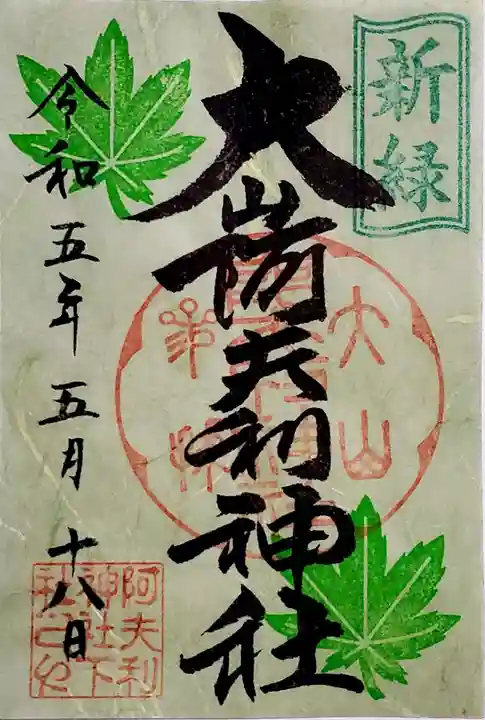 新緑
大山阿夫利神社
大山
令和五年五月十八日
阿夫利
神社下
社之印